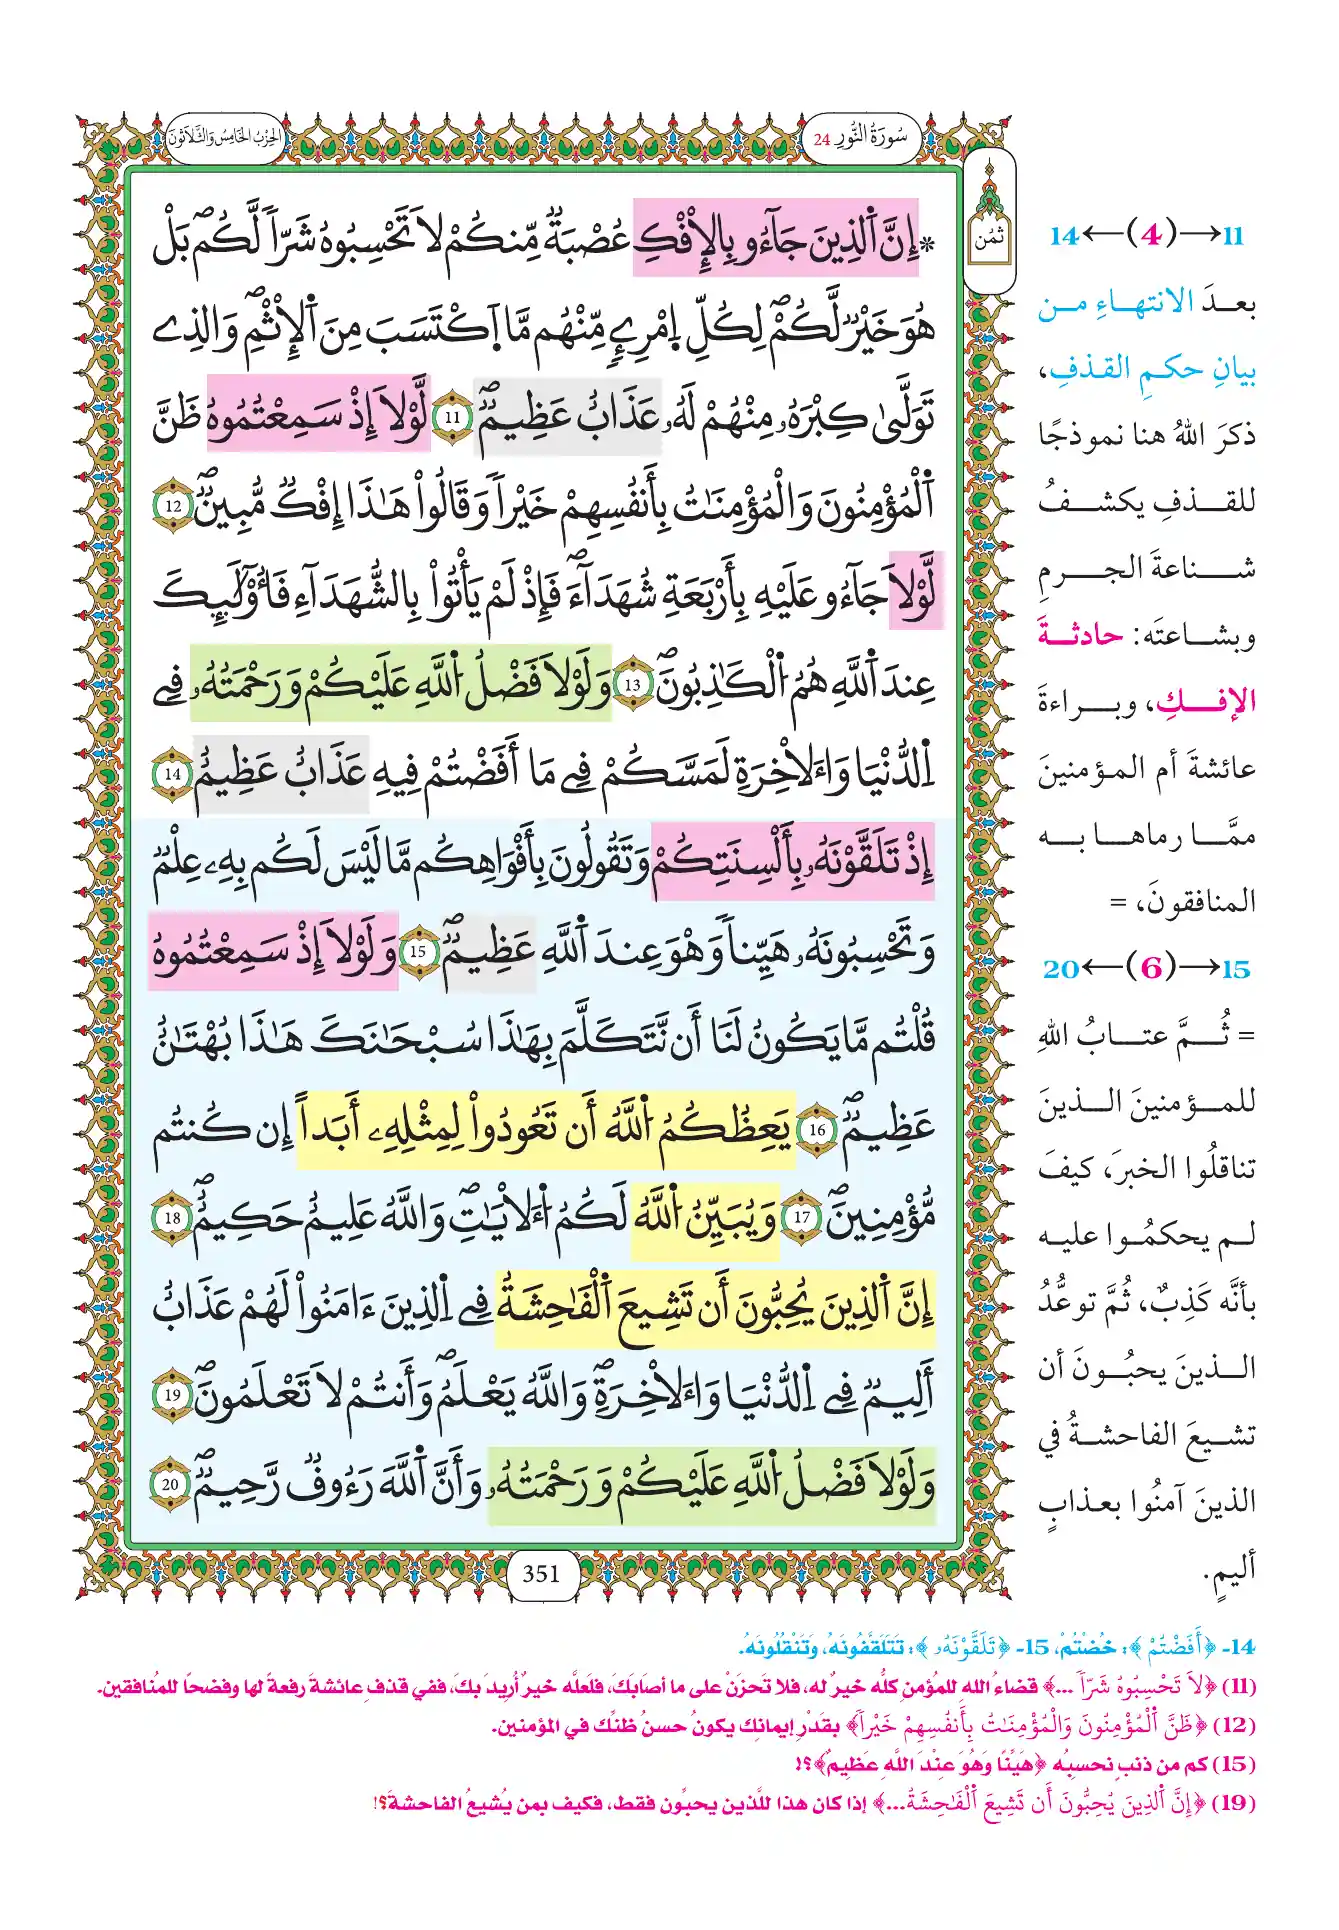 سُورَةُ النُّورِ 24
الحِزْبُ الخَامِسُ وَالثَّلَاثُونَ
ثُمُن
* إِنَّ اَ۬لذِينَ جَآءُو بِالِافْكِ عُصْبَةٞ مِّنكُمْ لَا تَحْسِبُوهُ شَرّاٗ لَّكُمۖ بَلْ
هُوَ خَيْرٞ لَّكُمْۖ لِكُلِّ اِ۪مْرِےٕٖ مِّنْهُم مَّا اَ۪كْتَسَبَ مِنَ اَ۬لِاثْمِۖ وَالذِے
تَوَلّ۪يٰ كِبْرَهُۥ مِنْهُمْ لَهُۥ عَذَابٌ عَظِيمٞۖ 11 لَّوْلَا إِذْ سَمِعْتُمُوهُ ظَنَّ
اَ۬لْمُؤْمِنُونَ وَالْمُؤْمِنَٰتُ بِأَنفُسِهِمْ خَيْراٗ وَقَالُواْ هَٰذَا إِفْكٞ مُّبِينٞۖ 12
لَّوْلَا جَآءُو عَلَيْهِ بِأَرْبَعَةِ شُهَدَآءَۖ فَإِذْ لَمْ يَأْتُواْ بِالشُّهَدَآءِ فَأُوْلَٰٓئِكَ
عِندَ اَ۬للَّهِ هُمُ اُ۬لْكَٰذِبُونَۖ 13 وَلَوْلَا فَضْلُ اُ۬للَّهِ عَلَيْكُمْ وَرَحْمَتُهُۥ فِے
اِ۬لدُّنْيَا وَالَاخِرَةِ لَمَسَّكُمْ فِے مَا أَفَضْتُمْ فِيهِ عَذَابٌ عَظِيمٌ 14
إِذْ تَلَقَّوْنَهُۥ بِأَلْسِنَتِكُمْ وَتَقُولُونَ بِأَفْوَاهِكُم مَّا لَيْسَ لَكُم بِهِۦ عِلْمٞ
وَتَحْسِبُونَهُۥ هَيِّناٗ وَهْوَ عِندَ اَ۬للَّهِ عَظِيمٞۖ 15 وَلَوْلَا إِذْ سَمِعْتُمُوهُ
قُلْتُم مَّا يَكُونُ لَنَا أَن نَّتَكَلَّمَ بِهَٰذَا سُبْحَٰنَكَ هَٰذَا بُهْتَٰنٌ
عَظِيمٞۖ 16 يَعِظُكُمُ اُ۬للَّهُ أَن تَعُودُواْ لِمِثْلِهِۦ أَبَداً إِن كُنتُم
مُّؤْمِنِينَۖ 17 وَيُبَيِّنُ اُ۬للَّهُ لَكُمُ اُ۬لَايَٰتِۖ وَاللَّهُ عَلِيمٌ حَكِيمٌۖ 18
إِنَّ اَ۬لذِينَ يُحِبُّونَ أَن تَشِيعَ اَ۬لْفَٰحِشَةُ فِے اِ۬لذِينَ ءَامَنُواْ لَهُمْ عَذَابٌ
أَلِيمٞ فِے اِ۬لدُّنْيَا وَالَاخِرَةِۖ وَاللَّهُ يَعْلَمُۖ وَأَنتُمْ لَا تَعْلَمُونَۖ 19
وَلَوْلَا فَضْلُ اُ۬للَّهِ عَلَيْكُمْ وَرَحْمَتُهُۥ وَأَنَّ اَ۬للَّهَ رَءُوفٞ رَّحِيمٞۖ 20
351
11→(4)←14
بعدَ الانتهاءِ من
بيانِ حكمِ القذفِ،
ذكرَ اللهُ هنا نموذجًا
للقذفِ يكشفُ
شناعةَ الجرمِ
وبشاعتَه: حادثةَ
الإفكِ، وبراءةَ
عائشةَ أم المؤمنينَ
ممَّا رماها به
المنافقونَ، =
15→(6)←20
= ثُمَّ عتابُ اللهِ
للمؤمنينَ الذينَ
تناقلُوا الخبرَ، كيفَ
لم يحكمُوا عليه
بأنَّه كَذِبٌ، ثُمَّ توعُّدُ
الذينَ يحبُّونَ أن
تشيعَ الفاحشةُ في
الذينَ آمنُوا بعذابٍ
أليمٍ.
14- ﴿أَفَضْتُمْ﴾: خُضْتُمْ، 15- ﴿تَلَقَّوْنَهُۥ﴾: تَتَلَقَّفُونَهُ، وَتَنْقُلُونَهُ.
(11) ﴿لَا تَحْسِبُوهُ شَرّاٗ ...﴾ قضاءُ اللهِ للمُؤمنِ كلُّه خيرٌ له، فلا تَحزَنْ على ما أصَابَكَ، فلَعلَّه خيرٌ أُرِيدَ بكَ، ففي قذفِ عائشةَ رفعةٌ لها وفضحًا للمُنافقين.
(12) ﴿ظَنَّ اَ۬لْمُؤْمِنُونَ وَالْمُؤْمِنَٰتُ بِأَنفُسِهِمْ خَيْراٗ﴾ بقَدْرِ إيمانِك يكونُ حسنُ ظنِّك في المؤمنين.
(15) كم من ذنبٍ نحسبُه ﴿هَيِّنًا وَهُوَ عِنْدَ اللَّهِ عَظِيمٌ﴾؟!
(19) ﴿إِنَّ اَ۬لذِينَ يُحِبُّونَ أَن تَشِيعَ اَ۬لْفَٰحِشَةُ...﴾ إذا كان هذا للَّذين يحبُّون فقط، فكيف بمن يُشيعُ الفاحشةَ؟!